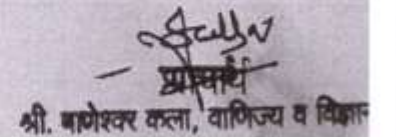 प्राचार्य
श्री. बाणेश्वर कला, वाणिज्य व विज्ञान